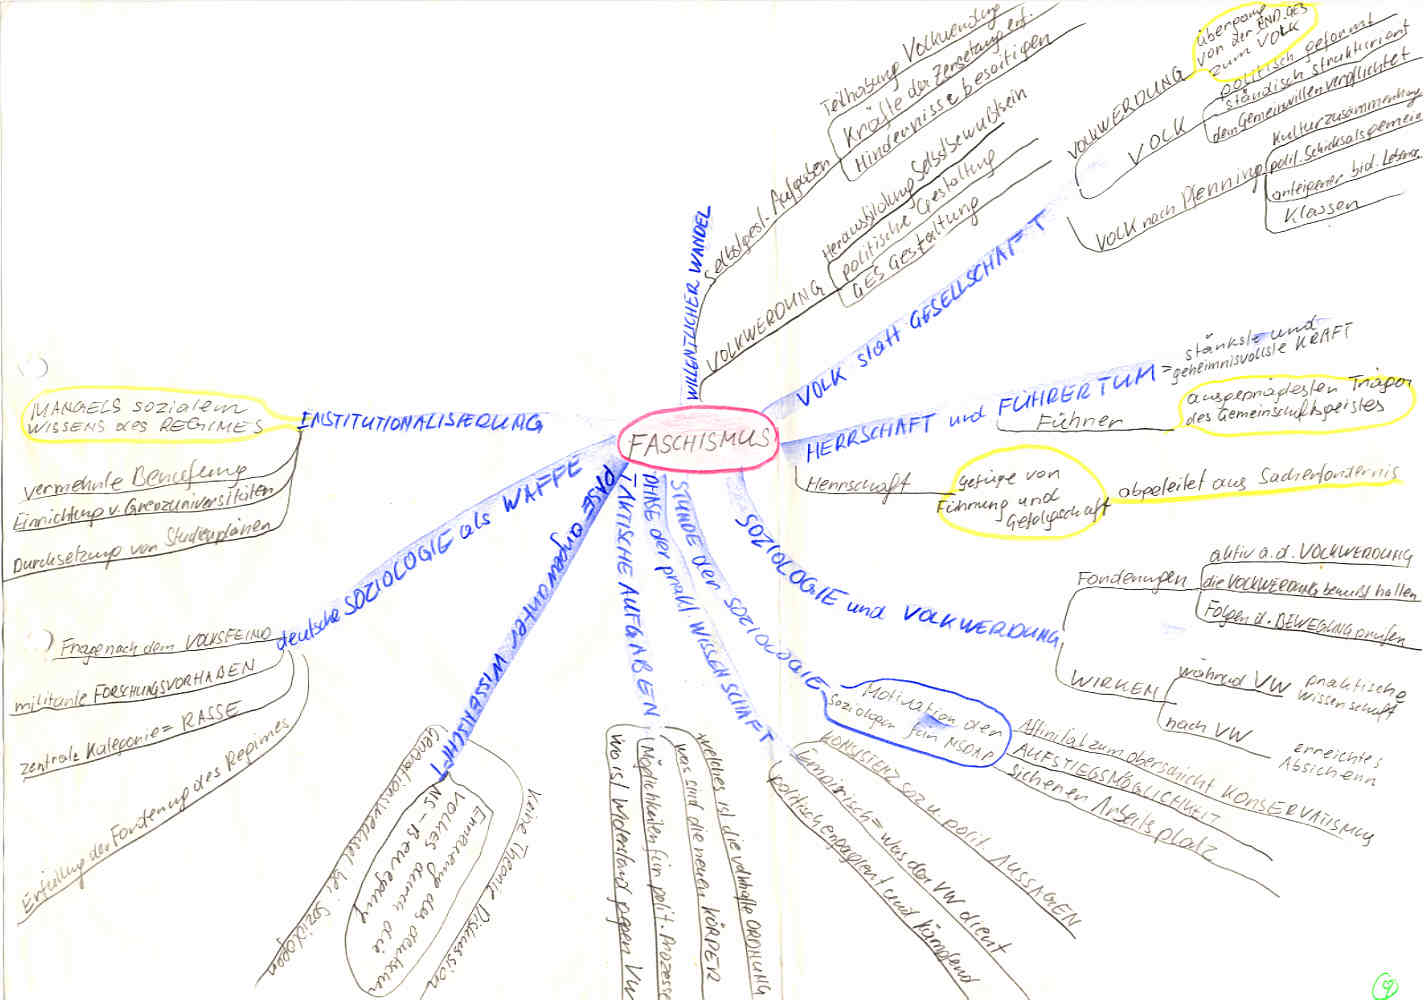 FASCHISMUS
WILLENTLICHER WANDEL
Selbstgest. Aufgaben
Teilhabung Volkwerdung
Kräfte der Zersetzung entf.
Hindernisse beseitigen
VOLKWERDUNG
Herausbildung Selbstbewußtsein
politische Gestaltung
GES Gestaltung
VOLK statt GESELLSCHAFT
VOLKWERDUNG
übergang
von der IND.GES
zum VOLK
VOLK
politisch geformt
ständisch strukturiert
dem Gemeinwillen verpflichtet
VOLK nach Pfenning
Kulturzusammenhang
polit. Schicksalsgemein
Klassen
HERRSCHAFT und FÜHRERTUM
= stärkste und
geheimnisvollste KRAFT
Führer
ausgeprägtesten Träger
des Gemeinschaftsgeistes
Herrschaft
gefüge von
Führung und
Gefolgschaft
abgeleitet aus Sacherfordernis
SOZIOLOGIE und VOLKWERDUNG
Forderungen
aktiv a.d. VOLKWERDUNG
die VOLKWERDUNG bewußt halten
Folgen d. BEWEGUNG prüfen
WIRKEN
während VW
praktische
Wissenschaft
nach VW
erreichtes
Absichern
STUNDE der SOZIOLOGIE
Motivation der
Soziologen für NSDAP
Affinität zum oberschicht KONSERVATISMUS
AUFSTIEGSMÖGLICHKEIT
sicherer Arbeitsplatz
PHASE der prakt. WISSENSCHAFT
KONSISTENZ soz. u. polit. AUSSAGEN
Empirisch = was der VW dient
politisch engagiert und kämpfend
TAKTISCHE AUFGABEN
welches ist die volkhafte ORDNUNG
was sind die neuen KÖRPER
Möglichkeiten für polit. Prozesse
wo ist Widerstand gegen VW
PHASE angewandter WISSENSCHAFT
Keine Theorie Diskussion
Erneuerung des deutschen
VOLKES durch die
NS-Bewegung
Generationswechsel bei Soziologen
deutsche SOZIOLOGIE als WAFFE
Frage nach dem VOLKSFEIND
militante FORSCHUNGSVORHABEN
zentrale Kategorie = RASSE
Erfüllung der Forderung des Regimes
INSTITUTIONALISIERUNG
MANGELS sozialem
WISSENS des REGIMES
vermehrte Berufung
Einrichtung v. Grenzuniversitäten
Durchsetzung von Studienplänen